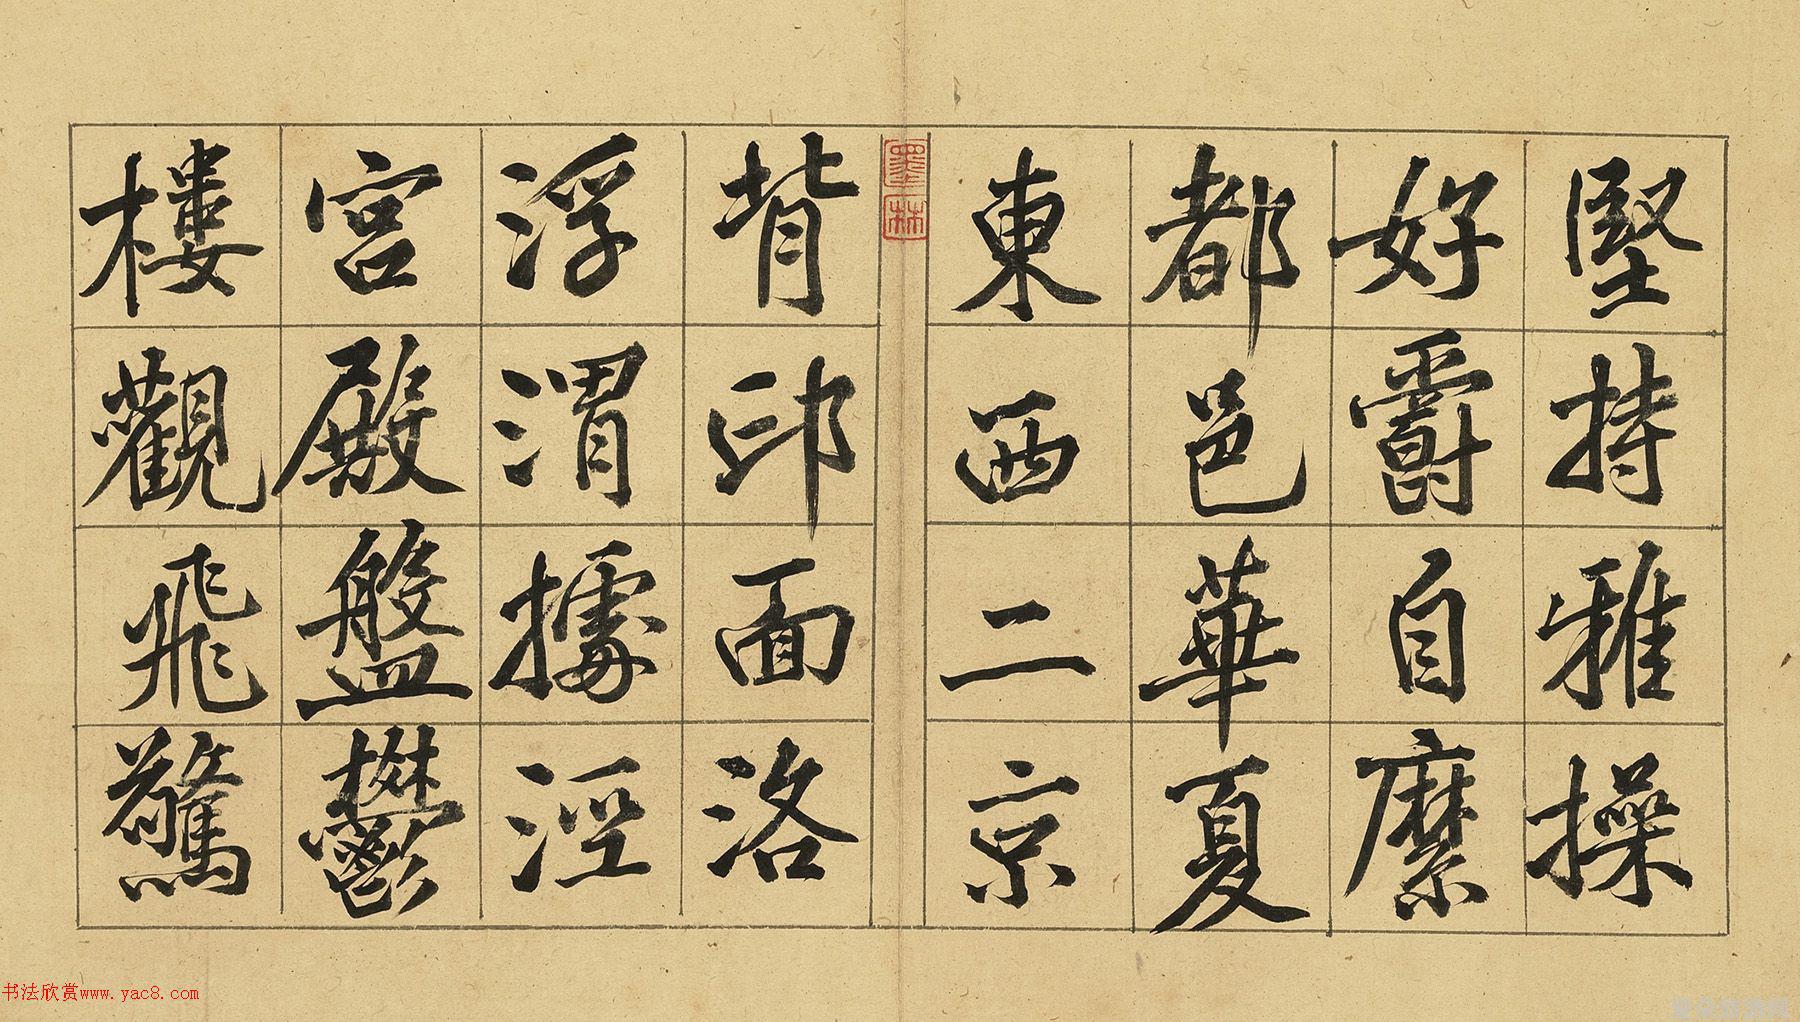 堅持雅操
好爵自縻
都邑華夏
東西二京
墨林
背邙面洛
浮渭據涇
宮殿盤鬱
樓觀飛驚
书法欣赏www.yac8.com